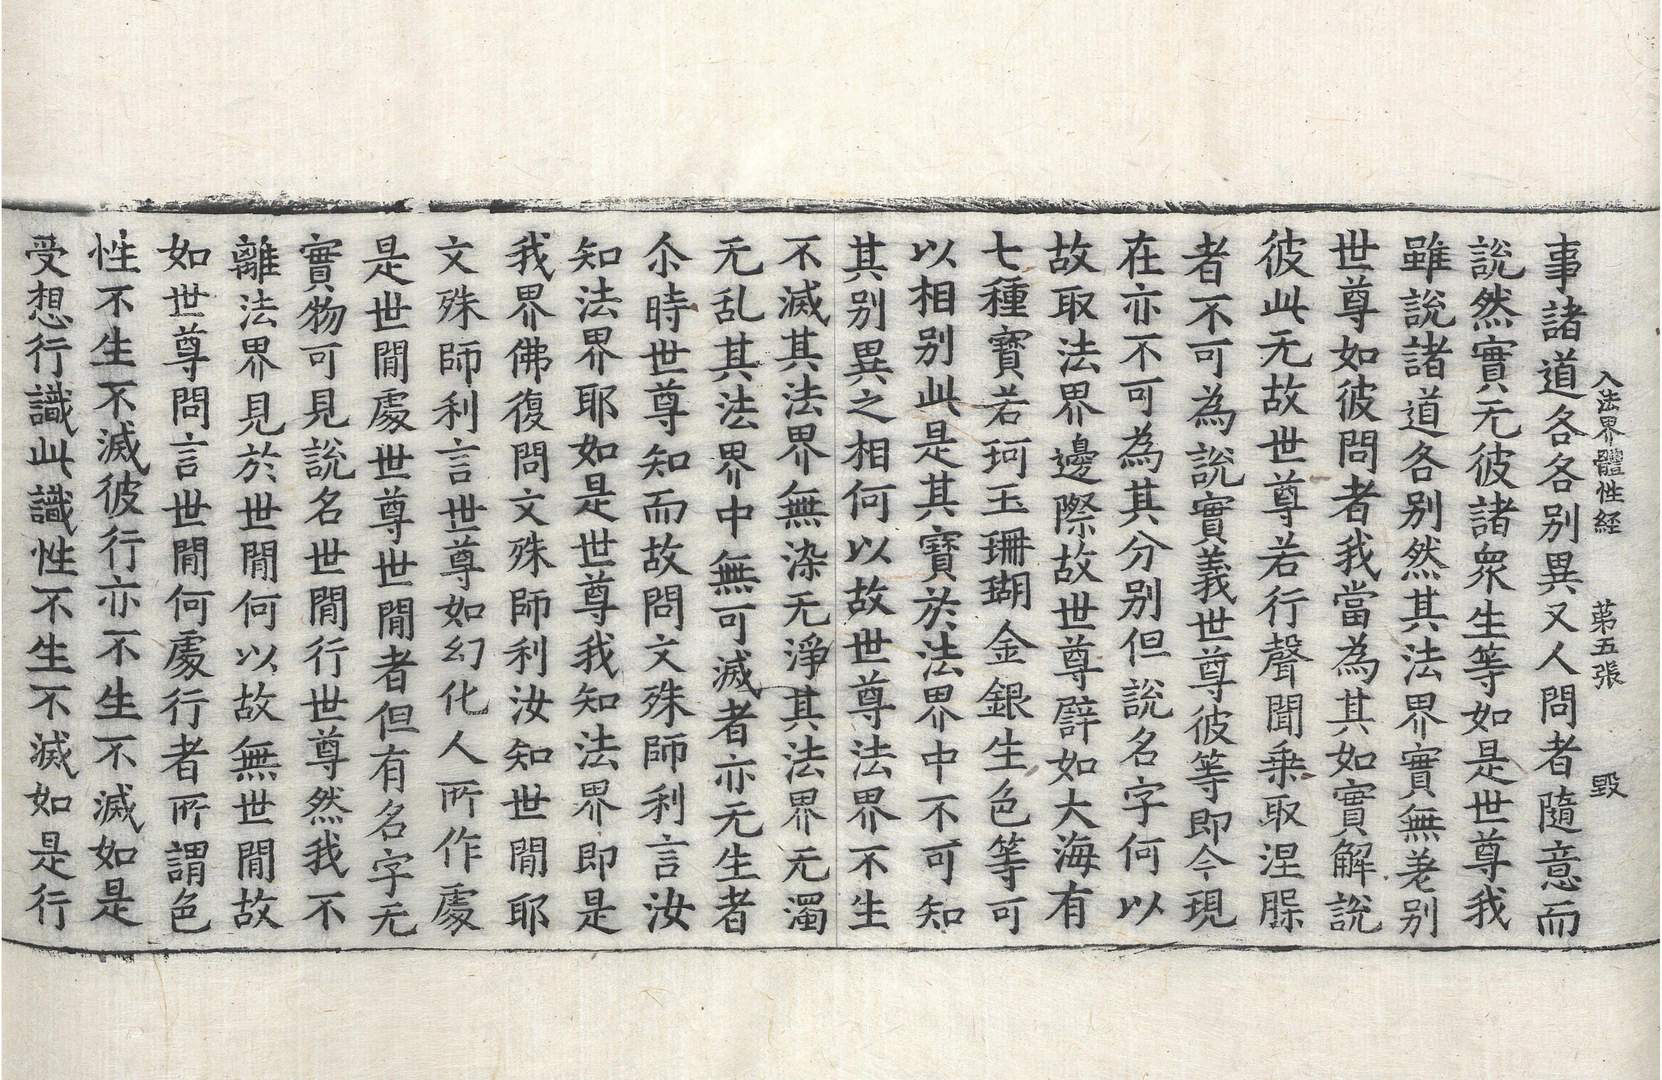 入法界體性経 第五張 毀
事諸道各各別異又人問者隨意而
說然實无彼諸衆生等如是世尊我
雖說諸道各别然其法界實無差别
世尊如彼問者我當為其如實解說
彼此无故世尊若行聲聞乗取涅槃
者不可為說實義世尊彼等即今現
在亦不可為其分别但說名字何以
故取法界邊際故世尊譬如大海有
七種寶若珂玉珊瑚金銀生色等可
以相别此是其寶於法界中不可知
其别異之相何以故世尊法界不生
不滅其法界無染无淨其法界无濁
无乱其法界中無可滅者亦无生者
尒時世尊知而故問文殊師利言汝
知法界耶如是世尊我知法界即是
我界佛復問文殊師利汝知世間耶
文殊師利言世尊如幻化人所作處
是世間處世尊世間者但有名字无
實物可見說名世間行世尊然我不
離法界見於世間何以故無世間故
如世尊問言世間何處行者所謂色
性不生不滅彼行亦不生不滅如是
受想行識此識性不生不滅如是行